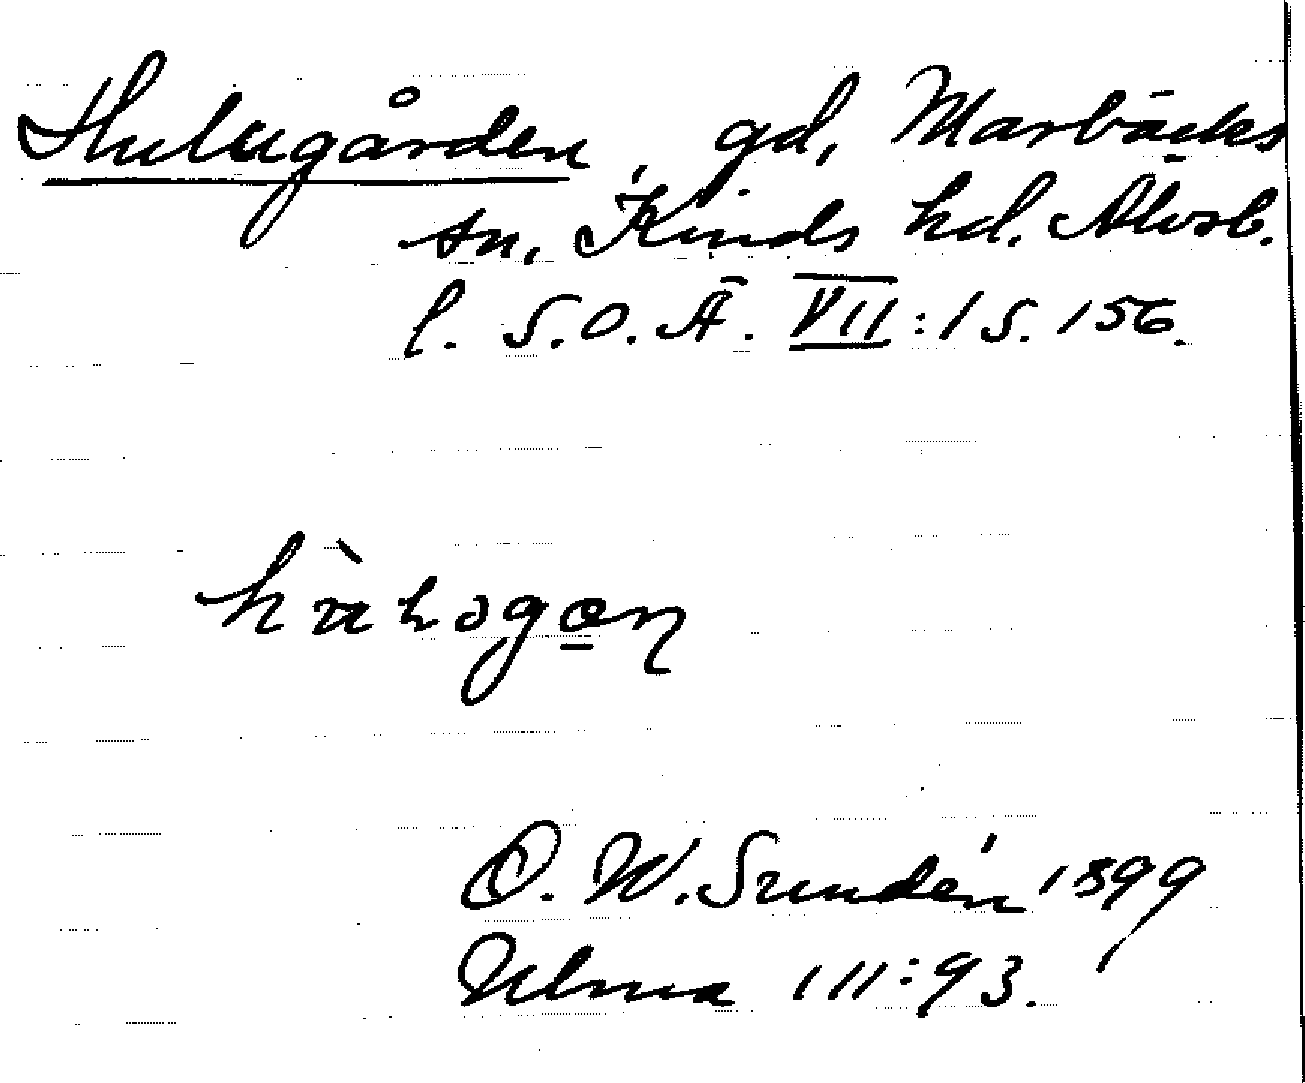 Hulugården, gd, Marbäcks
sn, Kinds hd. Älvsb.
l. S.O.Ä. VII:1 S. 156.
D. W. Sundén 1899
Ulma 111:93.